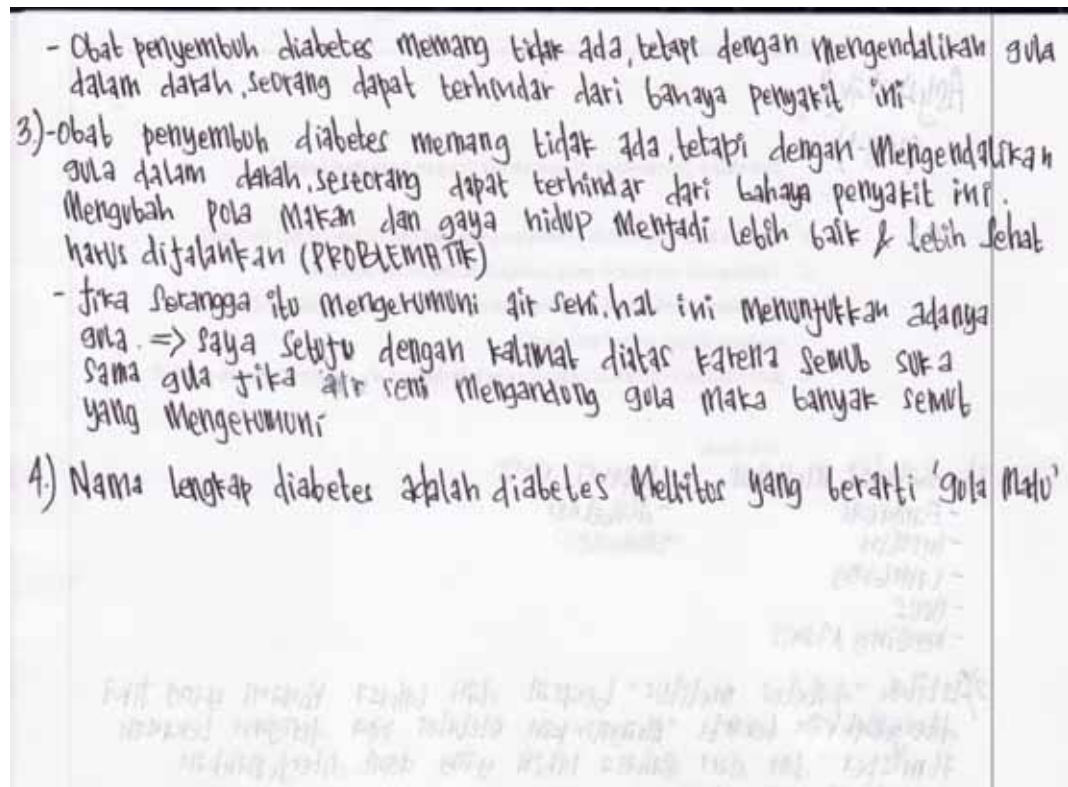 - Obat penyembuh diabetes memang tidak ada, tetapi dengan mengendalikan gula
dalam darah, seorang dapat terhindar dari bahaya penyakit ini
3.) - Obat penyembuh diabetes memang tidak ada, tetapi dengan mengendalikan
gula dalam darah, seseorang dapat terhindar dari bahaya penyakit ini.
Mengubah pola makan dan gaya hidup menjadi lebih baik & lebih sehat
harus dijalankan (PROBLEMATIK)
- Jika serangga itu mengerumuni air seni, hal ini menunjukkan adanya
gula. => saya setuju dengan kalimat diatas karena semut suka
sama gula jika air seni mengandung gula maka banyak semut
yang mengerumuni
4.) Nama lengkap diabetes adalah diabetes Mellitus yang berarti 'gula madu'